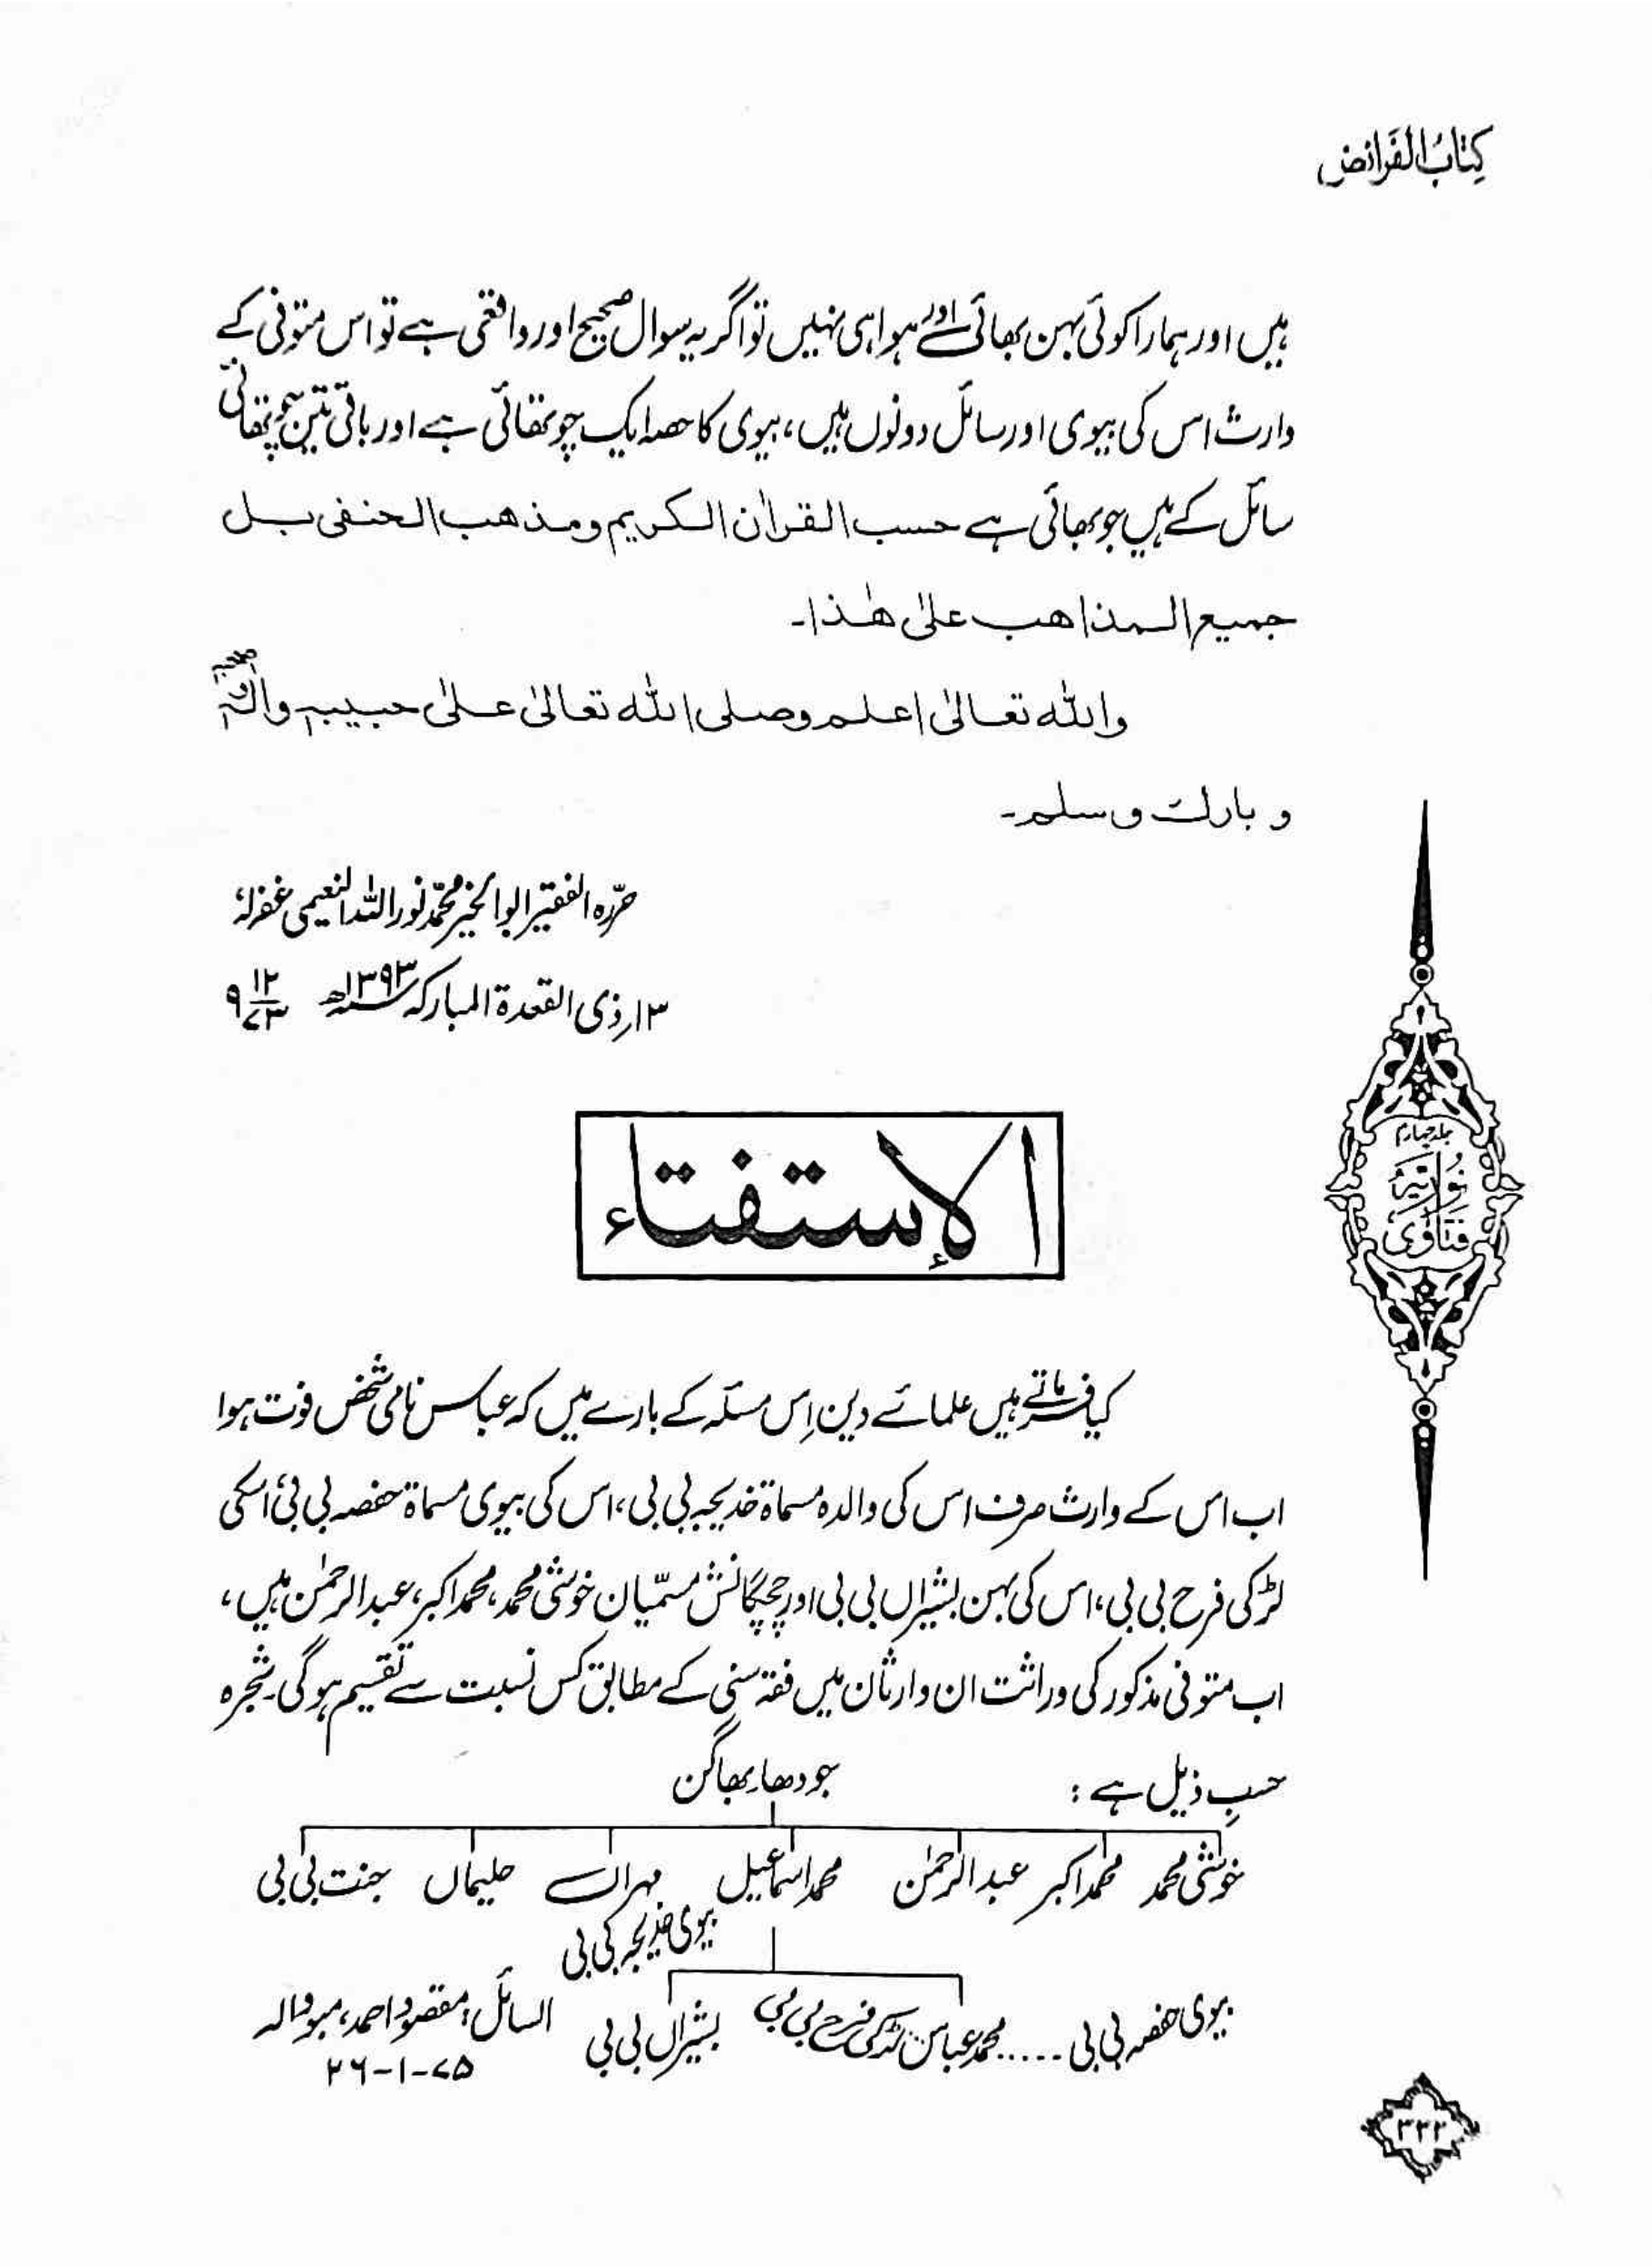 کِتَابُ الفَرَائض
ہیں اور ہمارا کوئی بہن بھائی اور ہوا ہی نہیں تو اگر یہ سوال صحیح اور واقعی ہے تو اس متوفی کے
وارث اس کی بیوی اور سائل دونوں ہیں، بیوی کا حصہ ایک چوتھائی ہے اور باقی تین چوتھائی
سائل کے ہیں جو بھائی ہے حسب القراٰن الکریم ومذھب الحنفی بل
جمیع المذاھب علیٰ ھٰذا۔
واللہ تعالیٰ اعلم وصلی اللہ تعالیٰ علیٰ حبیبہٖ واٰلہٖ وصحبہٖ
و بارك وسلم۔
حرّرہ الفقیر ابوالخیر محمّد نور اللہ النعیمی غفرلہٗ
۱۳؍ذی القعدۃ المبارکہ ۱۳۹۳ھ ۹ ۱۲ ۷۳
الإستفتاء
جلد چہارم
نُورِیَّہ
فتاویٰ
کیا فرماتے ہیں علمائے دین اِس مسئلہ کے بارے میں کہ عباس نامی شخص فوت ہوا
اب اس کے وارث صرف اس کی والدہ مسماۃ خدیجہ بی بی، اس کی بیوی مسماۃ حفصہ بی بی، اسکی
لڑکی فرح بی بی، اس کی بہن بشیراں بی بی اور چچگانش مسمّیان خوشی محمد، محمد اکبر، عبدالرحمٰن ہیں،
اب متوفی مذکور کی وراثت ان وارثان میں فقہ سنی کے مطابق کس نسبت سے تقسیم ہوگی۔ شجرہ
حسبِ ذیل ہے :
جودھا بھاگن
خوشی محمد محمد اکبر عبدالرحمٰن محمد اسماعیل مہراں حلیماں جنت بی بی
بیوی خدیجہ بی بی
بیوی حفصہ بی بی ..... محمد عباس لڑکی فرح بی بی بشیراں بی بی
السائل: مقصود احمد،
۲۶-۱-۷۵
۳۳۲